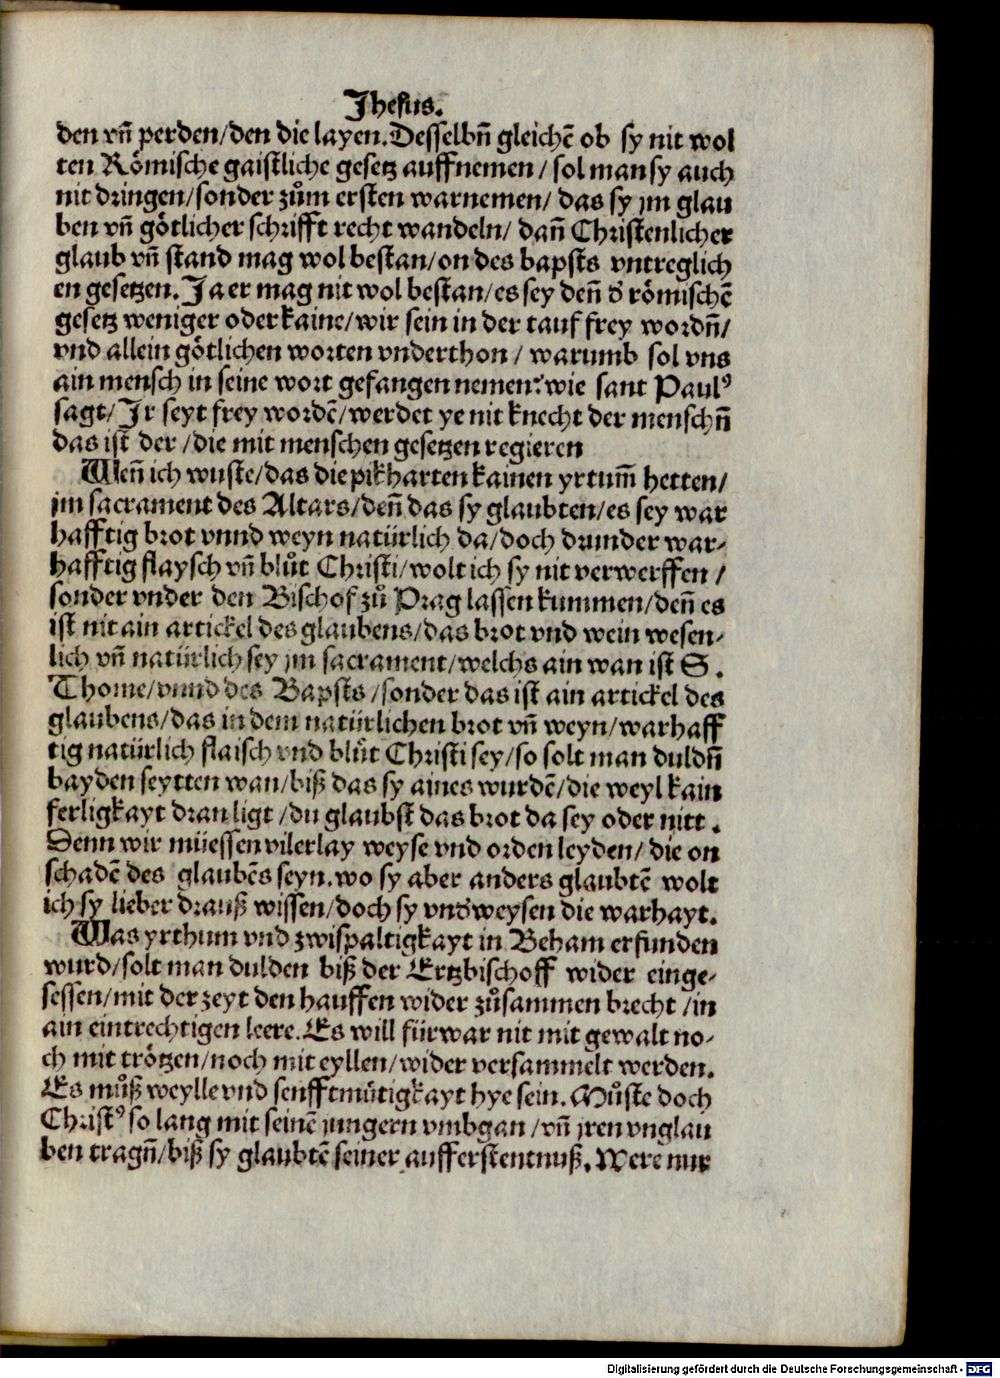 Jhesus.
den vñ perden/den die layen. Desselbñ gleichē ob sy nit wol
ten Römische gaistliche gesetz auffnemen / sol man sy auch
nit dringen/sonder zům ersten warnemen/ das sy jm glau
ben vñ götlicher schrifft recht wandeln/ dañ Christenlicher
glaub vñ stand mag wol bestan/on des bapsts vntreglich
en gesetzen. Ja er mag nit wol bestan/es sey deñ d̕ römischē
gesetz weniger oder kaine/wir sein in der tauf frey wordñ/
vnd allein götlichen worten vnderthon / warumb sol vns
ain mensch in seine wort gefangen nemen? wie sant Paulꝰ
sagt/ Jr seyt frey wordē/werdet ye nit knecht der menschñ
das ist der /die mit menschen gesetzen regieren
Weñ ich wuste/das die pikharten kainen yrtum̄ hetten/
jm sacrament des Altars/deñ das sy glaubten/es sey war
hafftig brot vnnd weyn natürlich da/doch drunder war-
hafftig flaysch vñ blůt Christi/wolt ich sy nit verwerffen /
sonder vnder den Bischof zů Prag lassen kummen/deñ es
ist nit ain artickel des glaubens/das brot vnd wein wesen-
lich vñ natürlich sey jm sacrament/welchs ain wan ist S.
Thome/vnnd des Bapsts /sonder das ist ain artickel des
glaubens/das in dem natürlichen brot vñ weyn/warhaff
tig natürlich flaisch vnd blůt Christi sey/so solt man duldñ
bayden seytten wan/biß das sy aines wurdē/die weyl kain
ferligkayt dran ligt /du glaubst das brot da sey oder nitt.
Denn wir müessen vilerlay weyse vnd orden leyden/ die on
schadē des glaubēs seyn. wo sy aber anders glaubtē wolt
ich sy lieber drauß wissen/doch sy vnd̕weysen die warhayt.
Was yrthum vnd zwispaltigkayt in Beham erfunden
wurd/solt man dulden biß der Ertzbischoff wider einge-
sessen/mit der zeyt den hauffen wider zůsammen brecht /in
ain eintrechtigen leere. Es will fürwar nit mit gewalt no-
ch mit trötzen/noch mit eyllen/wider versammelt werden.
Es můß weylle vnd senfftmütigkayt hye sein. Můste doch
Christꝰ so lang mit seinē jungern vmbgan /vñ jren vnglau
ben tragñ/biß sy glaubtē seiner aufferstentnuß. Were nur
Digitalisierung gefördert durch die Deutsche Forschungsgemeinschaft - DFG